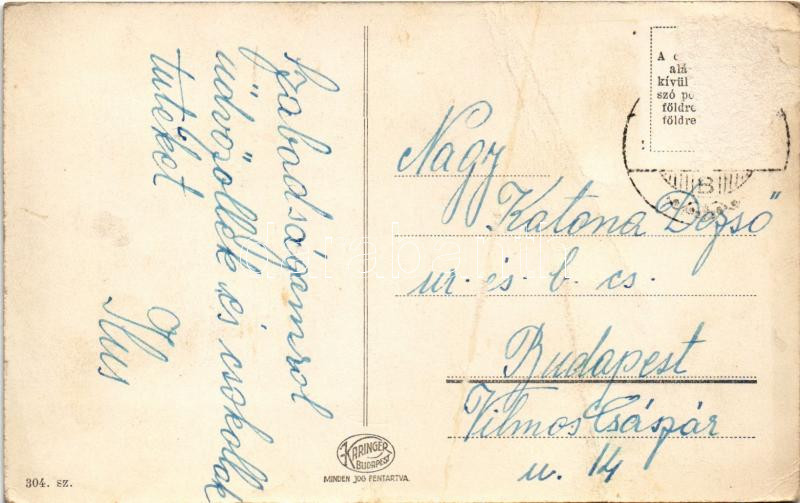 Szabadságomról
üdvözöllek és csókollak
titeket
Ilus
A c
alá-
kívül
szó po
földre
földre
B
Nagy
Katona Dezső
ur és b. cs.
Budapest
Vilmos Császár
u. 14
KARINGER
BUDAPEST
MINDEN JOG FENTARTVA.
304. sz.